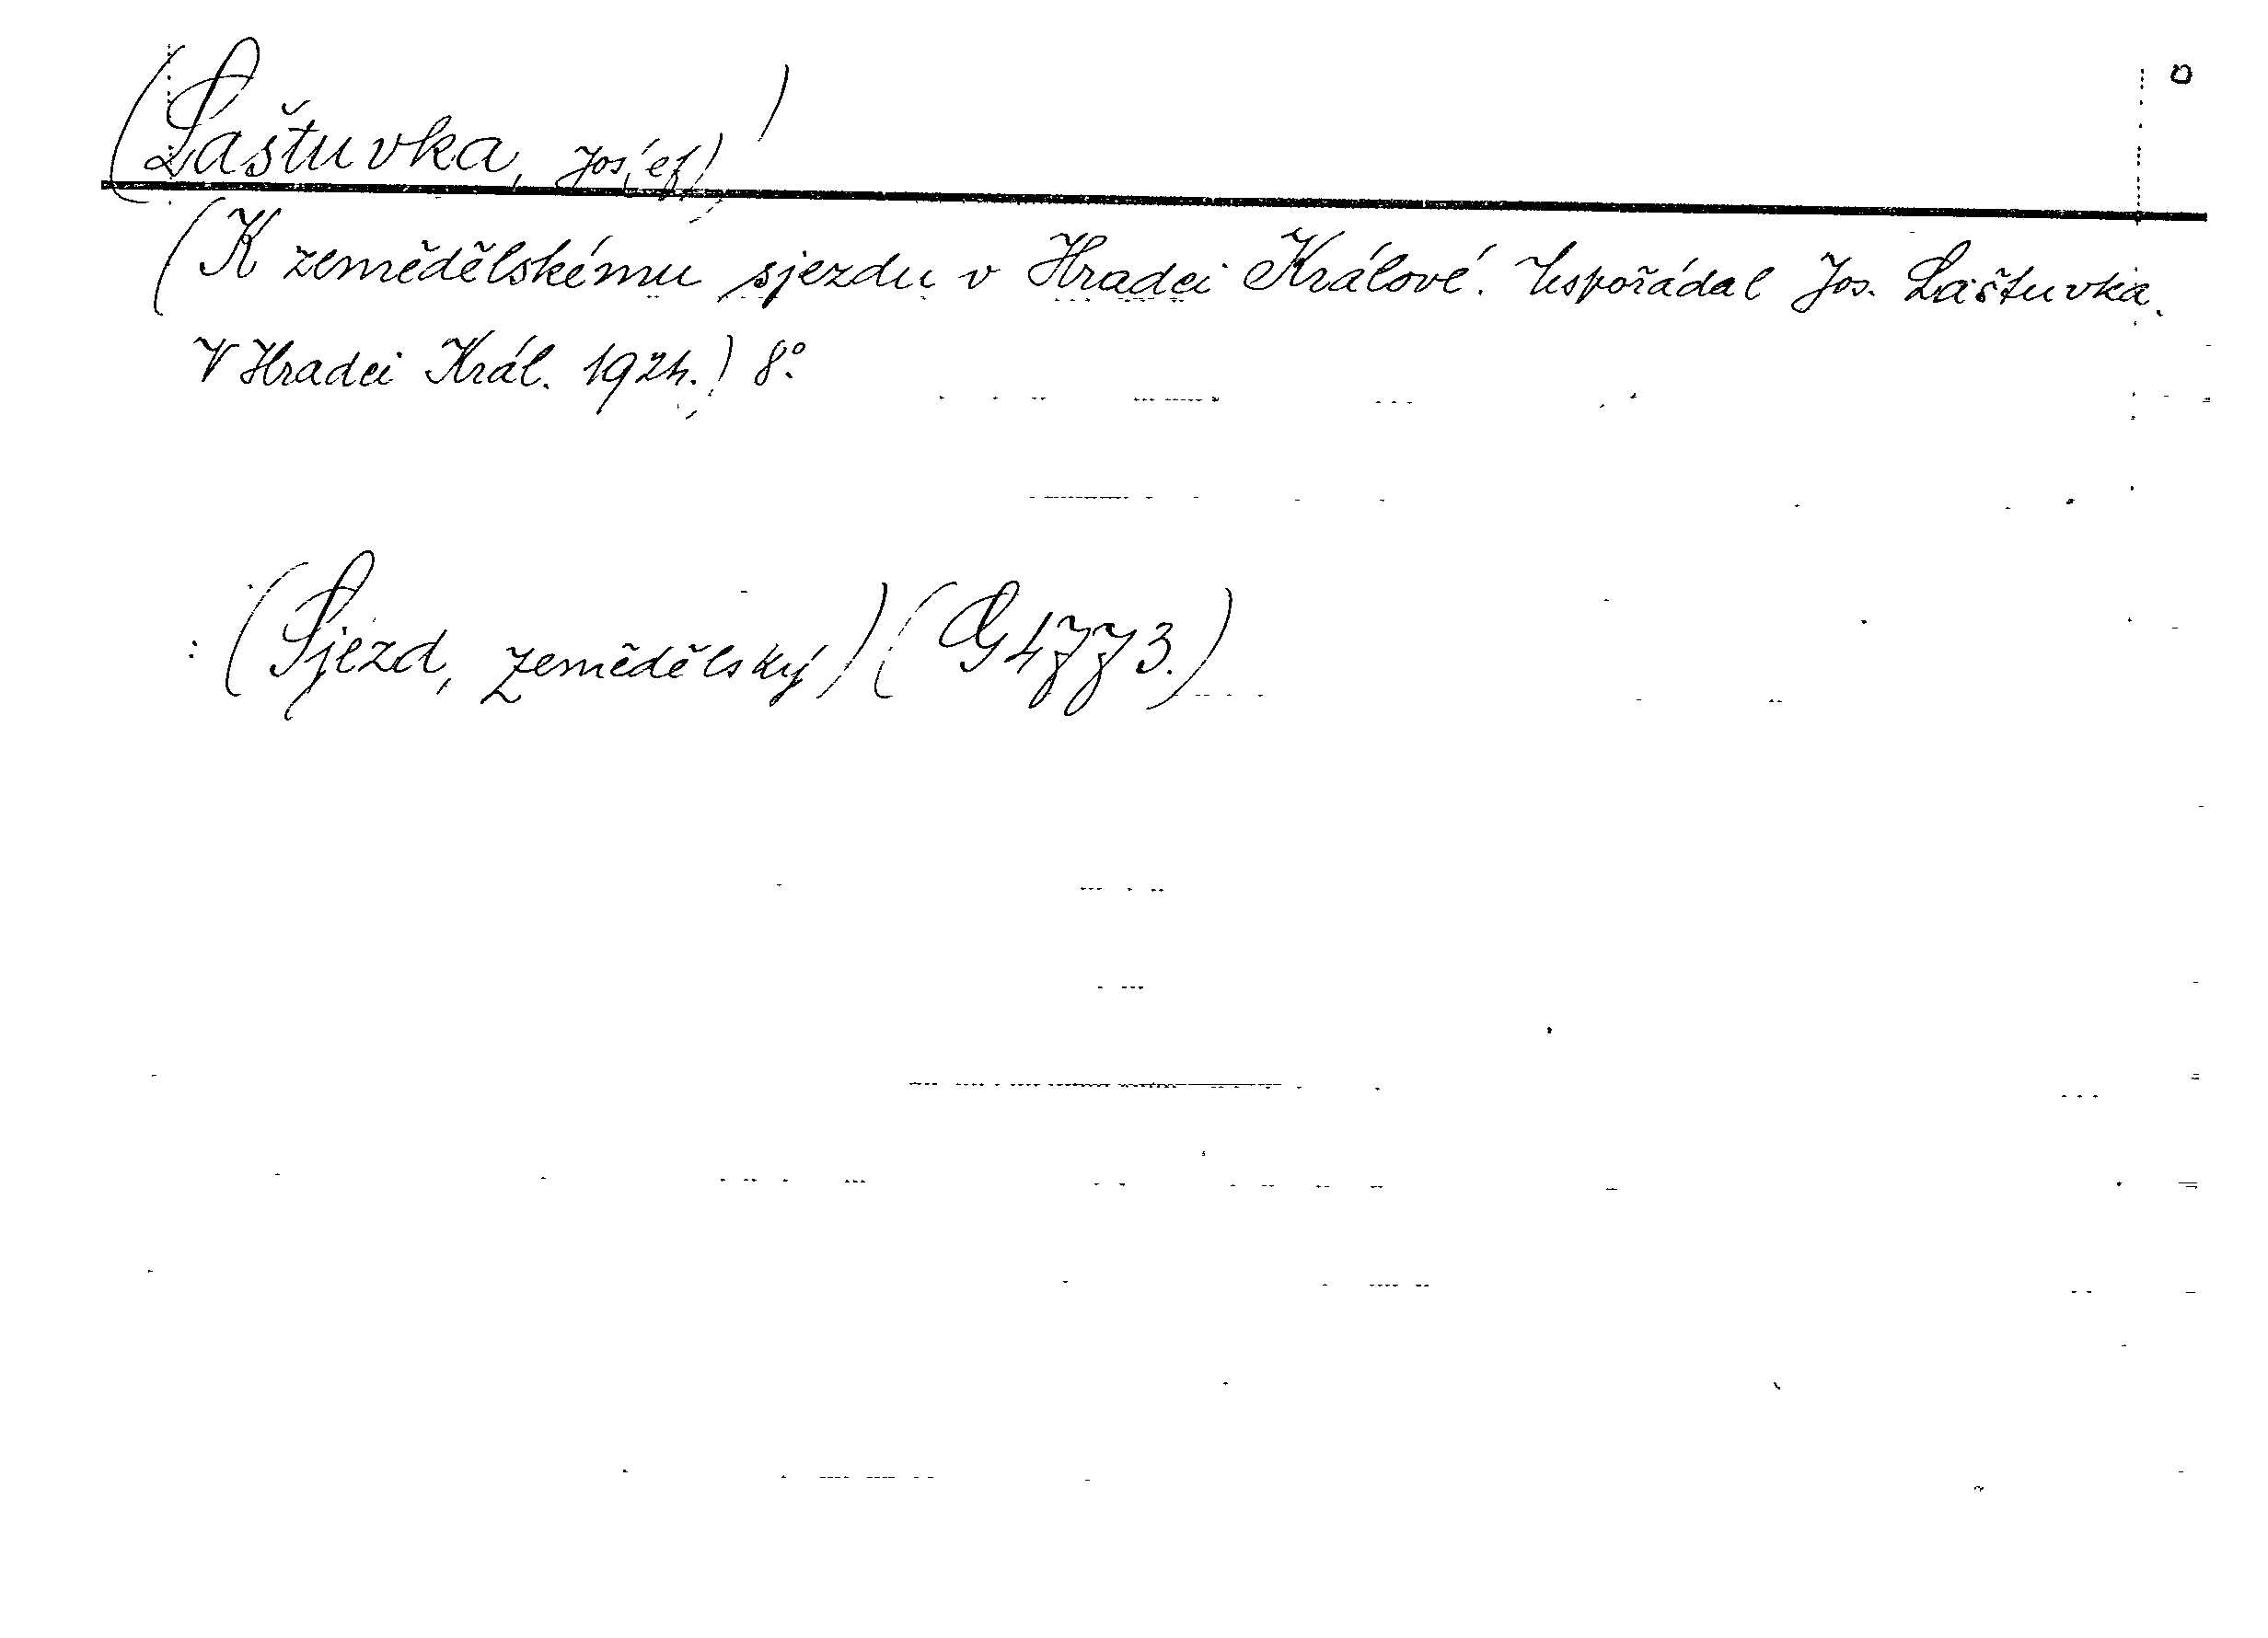 (Laštuvka, Jos(ef))
(K zemědělskému sjezdu v Hradci Králové. Uspořádal Jos. Laštuvka.
V Hradci Král. 1924.) 8°.
: (Sjezd, zemědělský) (G 4773.)